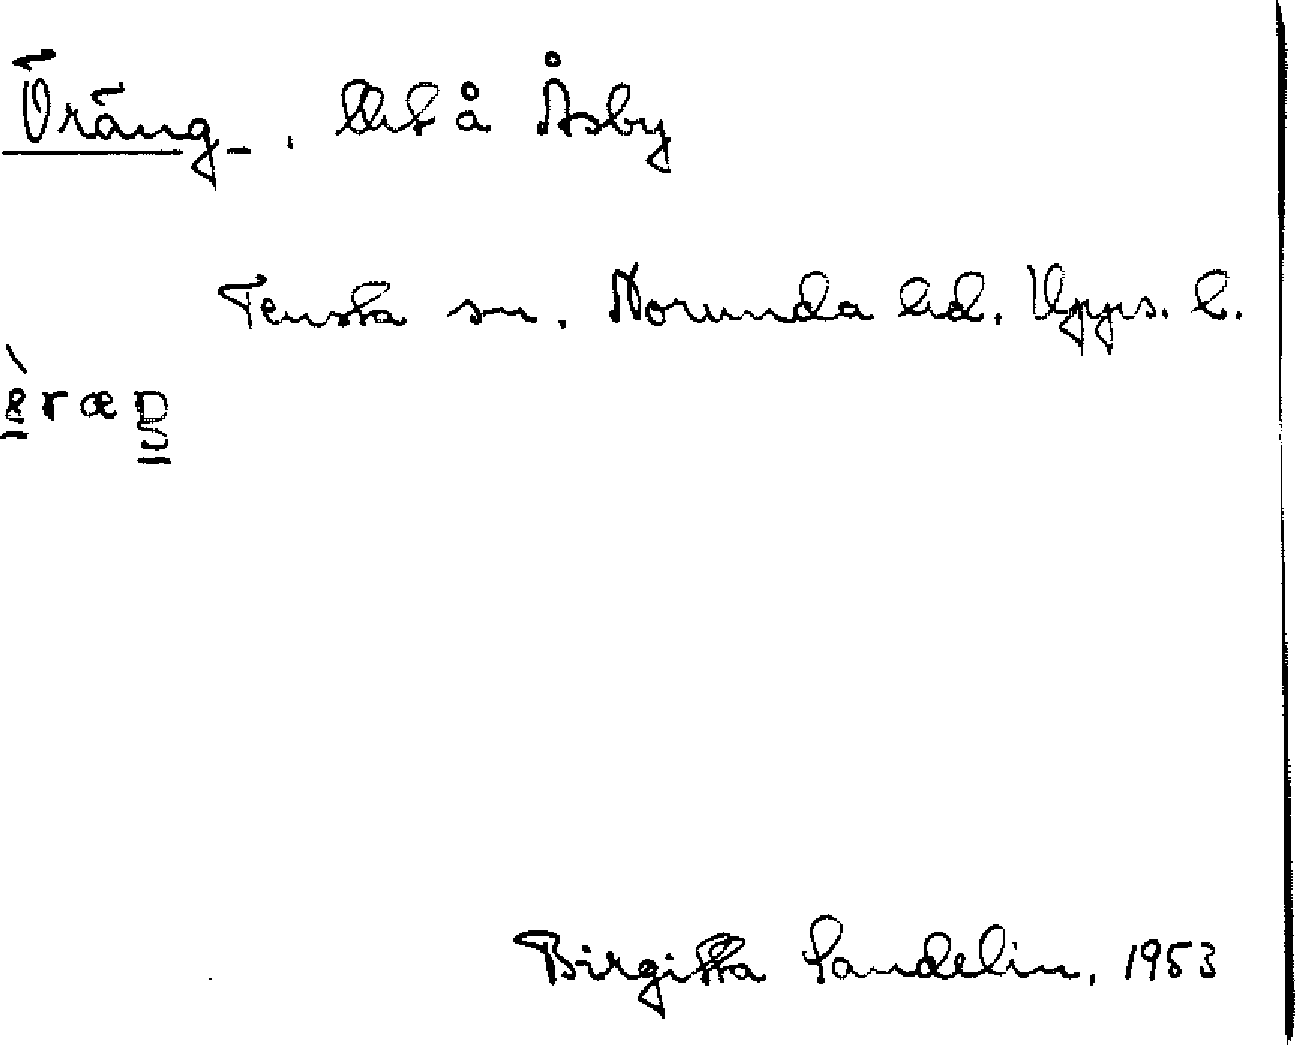 Öräng. , litt å Åsby
Tensta sn. Norunda hd. Upps. l.
Birgitta Sandelin, 1953